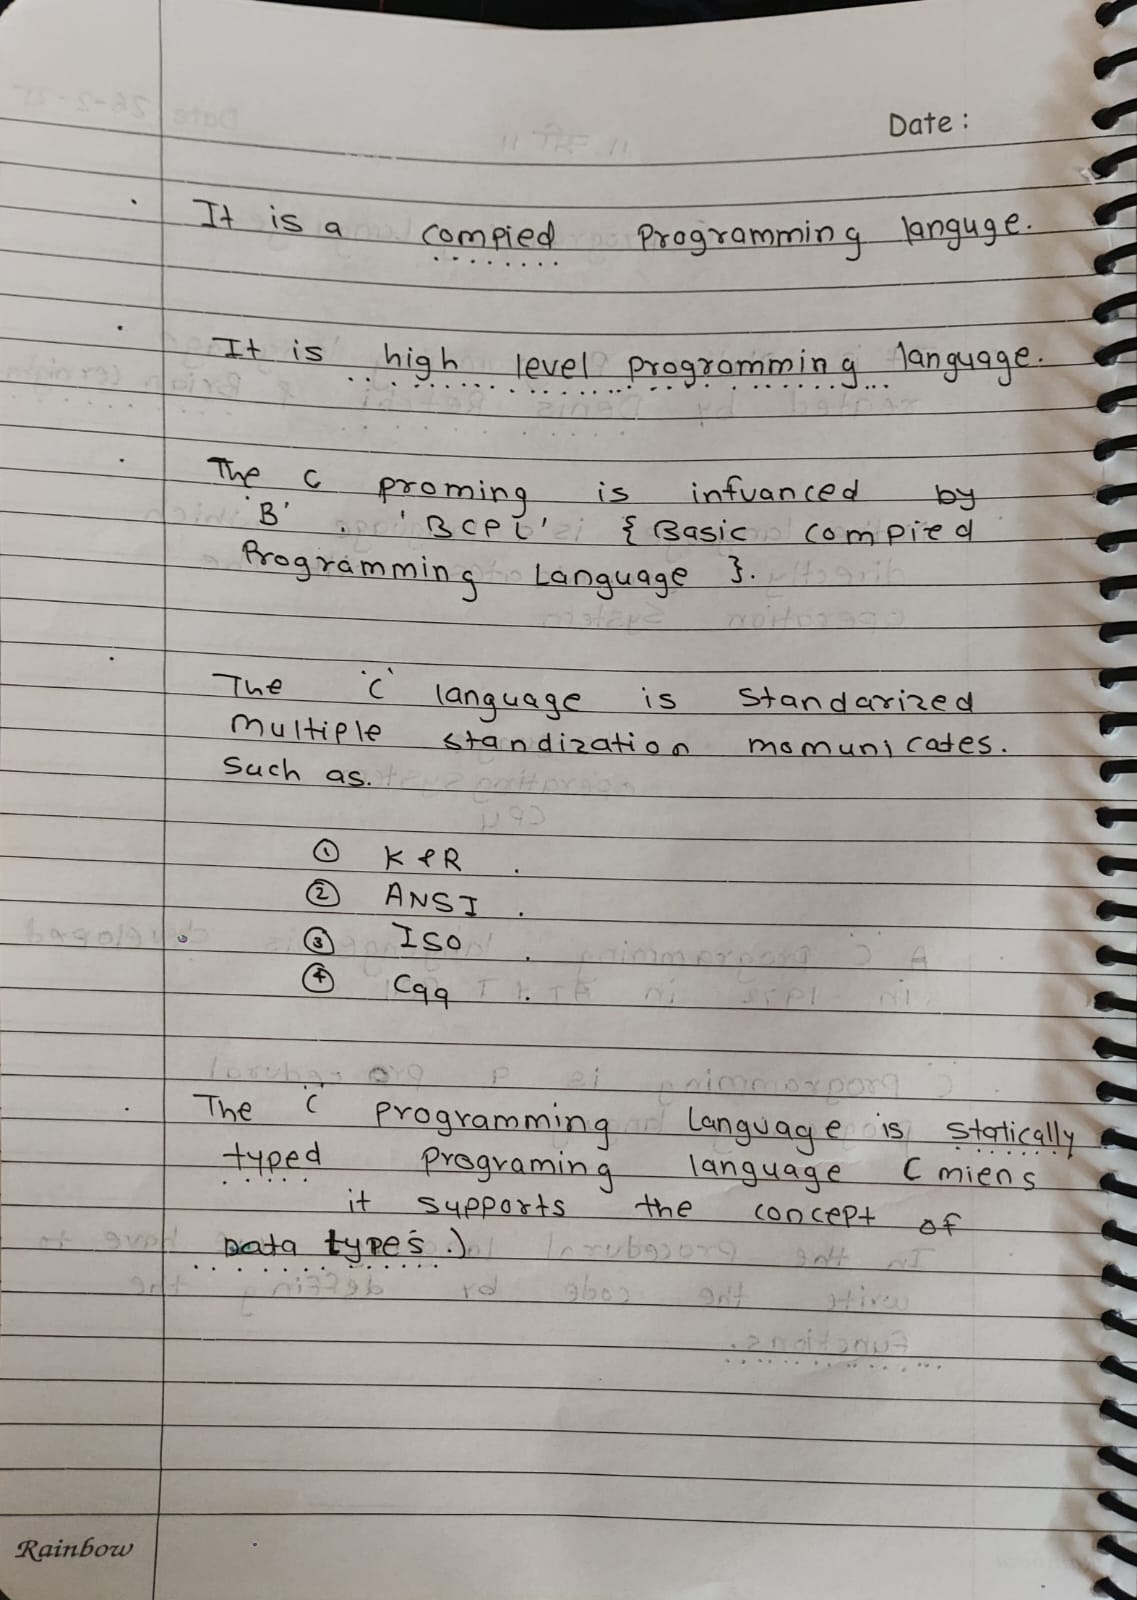 Date :
It is a compied Programming languge.
It is high level programming language.
The C proming is infvanced by
'B' . 'BCPL' { Basic Compied
Programming Language }.
The 'C' language is Standarized
multiple standization momunicates.
Such as.
① K & R .
② ANSI .
③ ISO .
④ C99 .
The C programming Language is statically
typed programing language ( miens
it supports the concept of
Data types .)
Rainbow